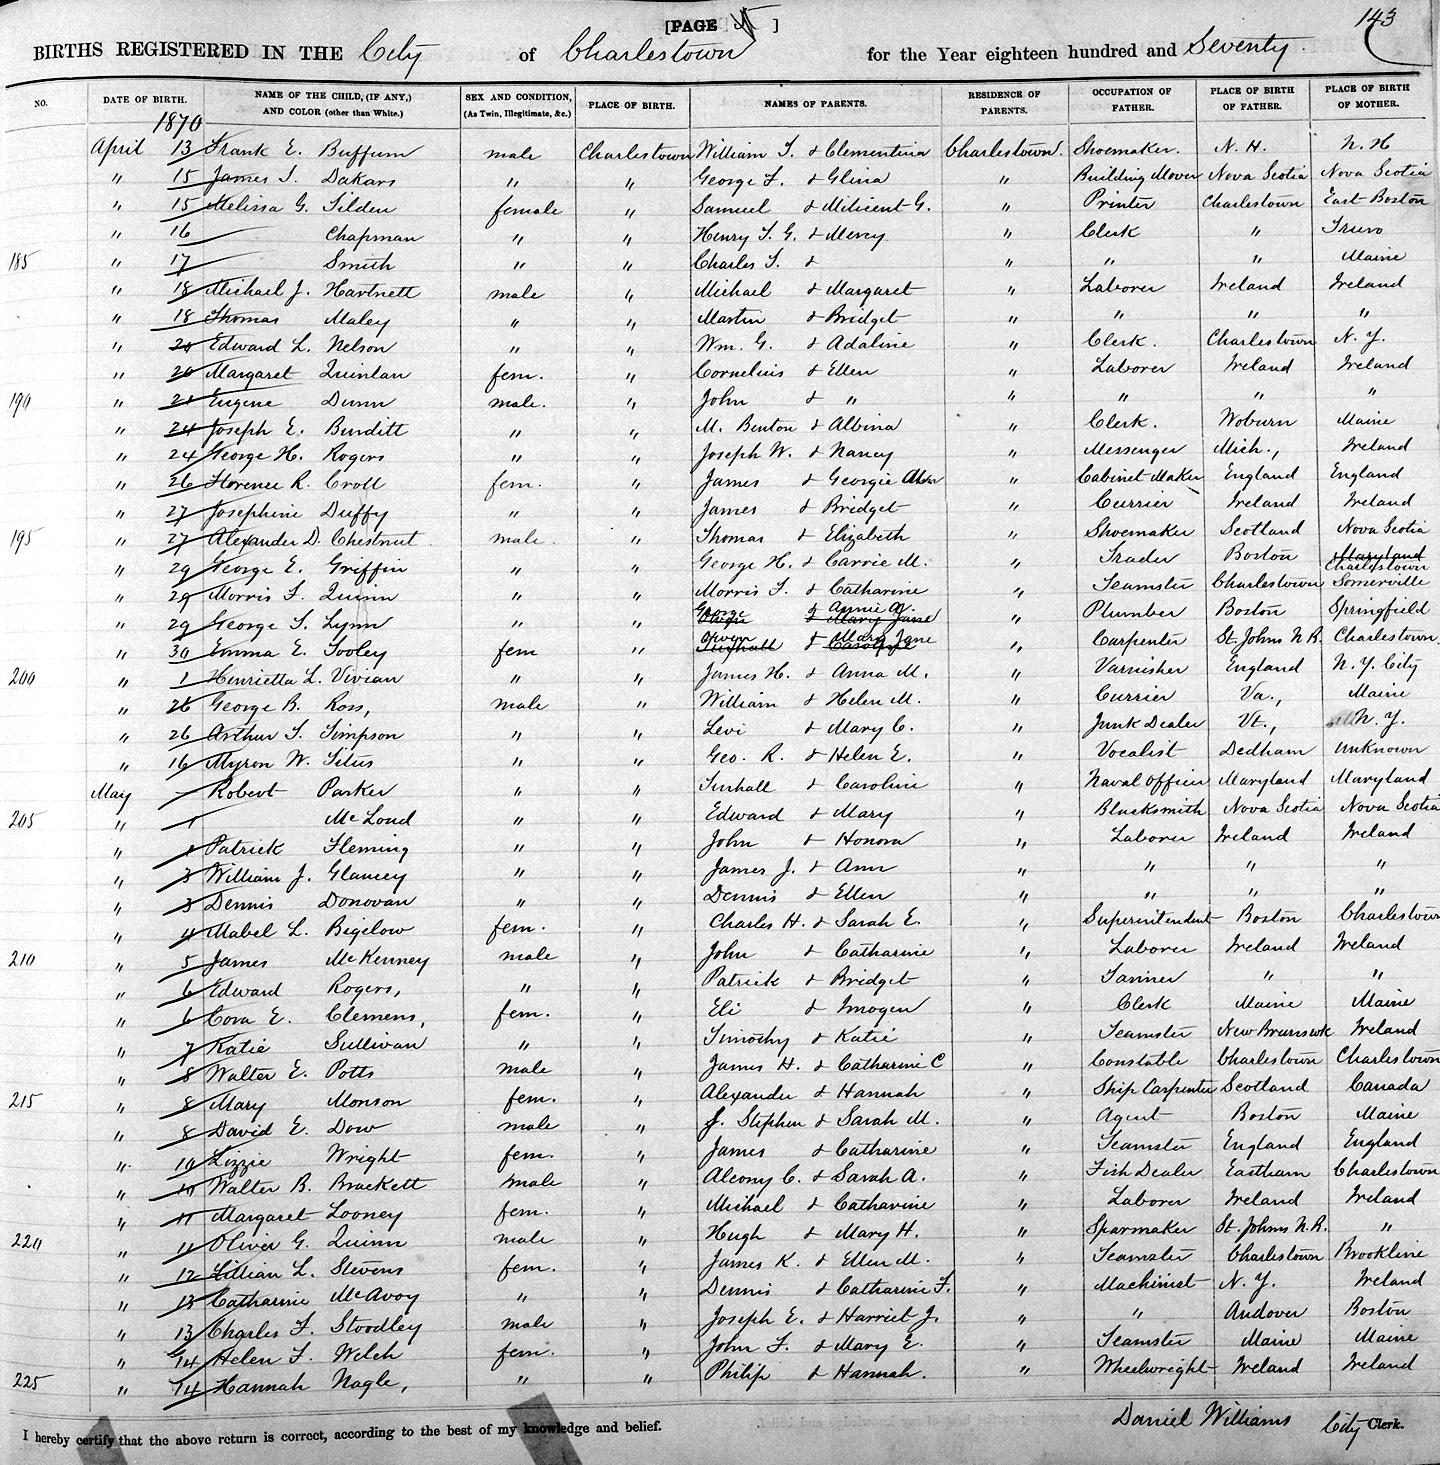 143
[PAGE 5 ]
BIRTHS REGISTERED IN THE City of Charlestown for the Year eighteen hundred and Seventy.
NO. DATE OF BIRTH. NAME OF THE CHILD, (IF ANY,) AND COLOR (other than White.) SEX AND CONDITION, (As Twin, Illegitimate, &c.) PLACE OF BIRTH. NAMES OF PARENTS. RESIDENCE OF PARENTS. OCCUPATION OF FATHER. PLACE OF BIRTH OF FATHER. PLACE OF BIRTH OF MOTHER.
1870
April 13 Frank E. Buffum male Charlestown William S. & Clementina Charlestown. Shoemaker. N. H. N. H
" 15 James S. Dakars " " George F. & Glina " Building Mover Nova Scotia Nova Scotia
" 15 Melissa G. Tilden female " Samuel & Milicent G. " Printer Charlestown East Boston
" 16 Chapman " " Henry T. G. & Mercy " Clerk " Truro
185 " 17 Smith " " Charles S. & " " " Maine
" 18 Michael J. Hartnett male " Michael & Margaret " Laborer Ireland Ireland
" 18 Thomas Maley " " Martin & Bridget " " " "
" 20 Edward L. Nelson " " Wm. G. & Adaline " Clerk. Charlestown N. Y.
" 20 Margaret Quinlan fem. " Cornelius & Ellen " Laborer Ireland Ireland
190 " 21 Eugene Dunn male. " John & " " " " "
" 24 Joseph E. Burditt " " M. Benton & Albina " Clerk. Woburn Maine
" 24 George H. Rogers " " Joseph W. & Nancy " Messenger Mich., Ireland
" 26 Florence R. Croll fem. " James & Georgie " Cabinet Maker England England
" 27 Josephine Duffy " " James & Bridget " Currier Ireland Ireland
195 " 27 Alexander D. Chestnut male. " Thomas & Elizabeth " Shoemaker Scotland Nova Scotia
" 29 George E. Griffin " " George H. & Carrie M. " Trader Boston Maryland Charlestown
" 29 Morris F. Quinn " " Morris F. & Catharine " Teamster Charlestown Somerville
" 29 George S. Lynn " " George & Annie A. & Mary Jane " Plumber Boston Springfield
" 30 Emma E. Tooley fem " Owen & Mary Jane Tunhall & Caroline " Carpenter St. Johns N. B. Charlestown
200 " 1 Henrietta L. Vivian " " James H. & Anna M. " Varnisher England N. Y. City
" 26 George B. Ross, male " William & Helen M. " Currier Va., Maine
" 26 Arthur S. Simpson " " Levi & Mary C. " Junk Dealer Vt., N. Y.
" 16 Myron W. Titus " " Geo. R. & Helen E. " Vocalist Dedham Unknown
May — Robert Parker " " Tunhall & Caroline " Naval Officer Maryland Maryland
205 " 1 McLoud " " Edward & Mary " Blacksmith Nova Scotia Nova Scotia
" 1 Patrick Fleming " " John & Honora " Laborer Ireland Ireland
" 3 William J. Glancey " " James J. & Ann " " " "
" 3 Dennis Donovan " " Dennis & Ellen " " " "
" 4 Mabel L. Bigelow fem. " Charles H. & Sarah E. " Superintendent Boston Charlestown
210 " 5 James McKenney male " John & Catharine " Laborer Ireland Ireland
" 6 Edward Rogers, " " Patrick & Bridget " Tanner " "
" 6 Cora E. Clemens, fem. " Eli & Imogen " Clerk Maine Maine
" 7 Katie Sullivan " " Timothy & Katie " Teamster New Brunswk Ireland
" 8 Walter E. Potts male " James H. & Catharine C " Constable Charlestown Charlestown
215 " 8 Mary Monson fem. " Alexander & Hannah " Ship Carpenter Scotland Canada
" 8 David E. Dow male " J. Stephen & Sarah M. " Agent Boston Maine
" 10 Lizzie Wright fem. " James & Catharine " Teamster England England
" 10 Walter B. Brackett male " Alcony C. & Sarah A. " Fish Dealer Eastham Charlestown
" 11 Margaret Looney fem. " Michael & Catharine " Laborer Ireland Ireland
220 " 11 Oliver G. Quinn male " Hugh & Mary H. " Sparmaker St. Johns N. B. "
" 12 Lillian L. Stevens fem. " James K. & Ellen M. " Teamster Charlestown Brookline
" 13 Catharine McAvoy " " Dennis & Catharine F. " Machinist N. Y. Ireland
" 13 Charles F. Stoodley male " Joseph E. & Harriet J. " " Andover Boston
" 14 Helen F. Welch fem. " John F. & Mary E. " Teamster Maine Maine
225 " 14 Hannah Nagle, " " Philip & Hannah. " Wheelwright Ireland Ireland
I hereby certify that the above return is correct, according to the best of my knowledge and belief. Daniel Williams City Clerk.